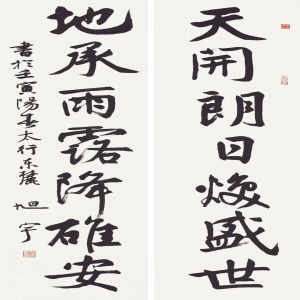 天開朗日焕盛世
地承雨露降雄安
書於壬寅陽春太行东麓
旭宇